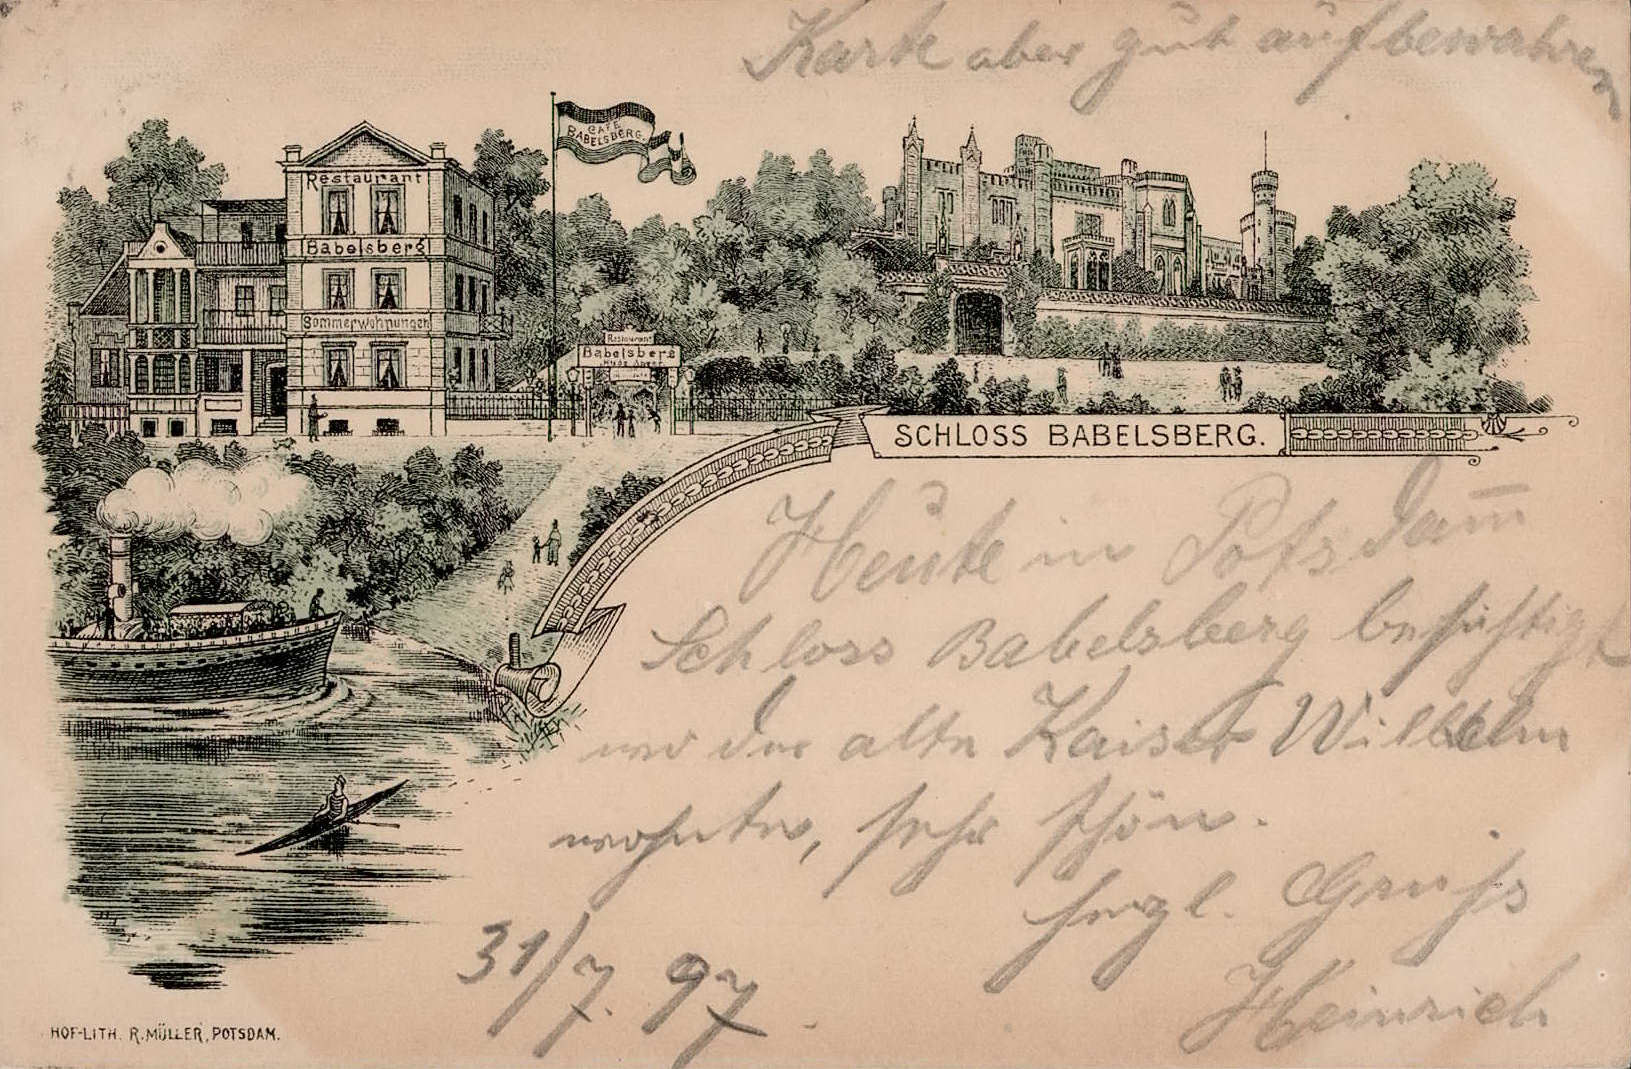 Karte aber gut aufbewahren
CAFÉ
BABELSBERG.
Restaurant
Babelsberg
Sommerwohnungen
Restaurant
Babelsberg
SCHLOSS BABELSBERG.
Heute in Potsdam̄
Schloss Babelsberg besichtigt
wo der alte Kaiser Wilhelm
wohnte, sehr schön.
herzl. Gruß
Heinrich
31/7. 97.
HOF-LITH. R. MÜLLER, POTSDAM.